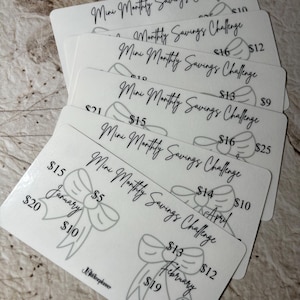 Mini Monthly Savings Challenge
$10
Mini Monthly Savings Challenge
$16 $12
Mini Monthly Savings Challenge
$13 $9
Mini Monthly Savings Challenge
$21 $15
$16 $25
Mini Monthly Savings Challenge
$14 $10
April
Mini Monthly Savings Challenge
$15 $5
January
$20 $10
$13 $12
February
$19